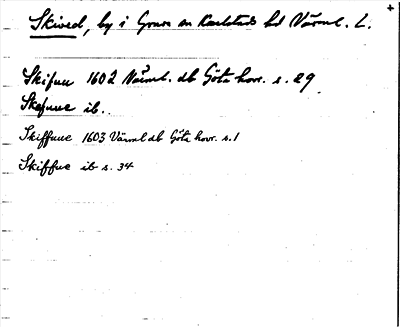 Skived, by i Grava sn Karlstads hd Värml. L.
Skifuu 1602 Värml. db Göta hovr. s. 29
Skefuue ib.
Skiffuue 1603 Värml db Göta hovr. s. 1
Skiffue ib s. 34